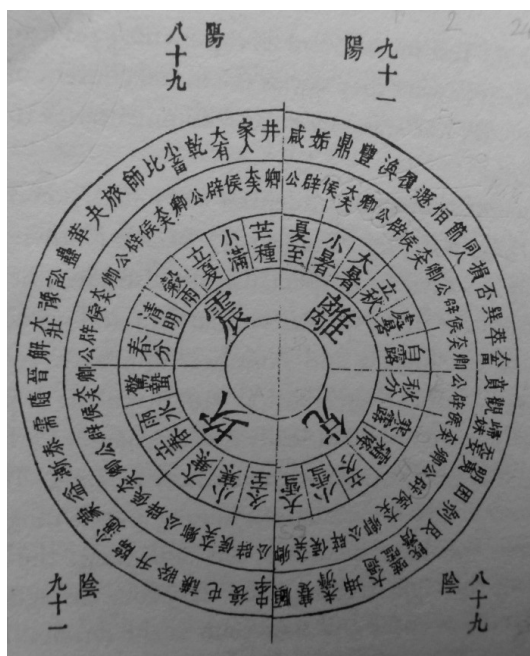 陽
八十九
九十一
陽
咸 姤 鼎 豐 渙 履 遯 恒 節 同人 損 否 巽 萃 大畜 賁 觀 歸妹 无妄 明夷 困 剝 艮 既濟 噬嗑 大過 坤 未濟 蹇 頤 中孚 復 屯 謙 睽 升 臨 小過 蒙 益 漸 泰 需 隨 晉 解 大壯 豫 訟 蠱 革 夬 旅 師 比 小畜 乾 大有 家人 井
公 辟 侯 大夫 卿 公 辟 侯 大夫 卿 公 辟 侯 大夫 卿 公 辟 侯 大夫 卿 公 辟 侯 大夫 卿 公 辟 侯 大夫 卿 公 辟 侯 大夫 卿 公 辟 侯 大夫 卿 公 辟 侯 大夫 卿 公 辟 侯 大夫 卿 公 辟 侯 大夫 卿 公 辟 侯 大夫 卿
夏至 小暑 大暑 立秋 處暑 白露 秋分 寒露 霜降 立冬 小雪 大雪 冬至 小寒 大寒 立春 雨水 驚蟄 春分 清明 穀雨 立夏 小滿 芒種
離 兌 坎 震
陰
九十一
八十九
陰